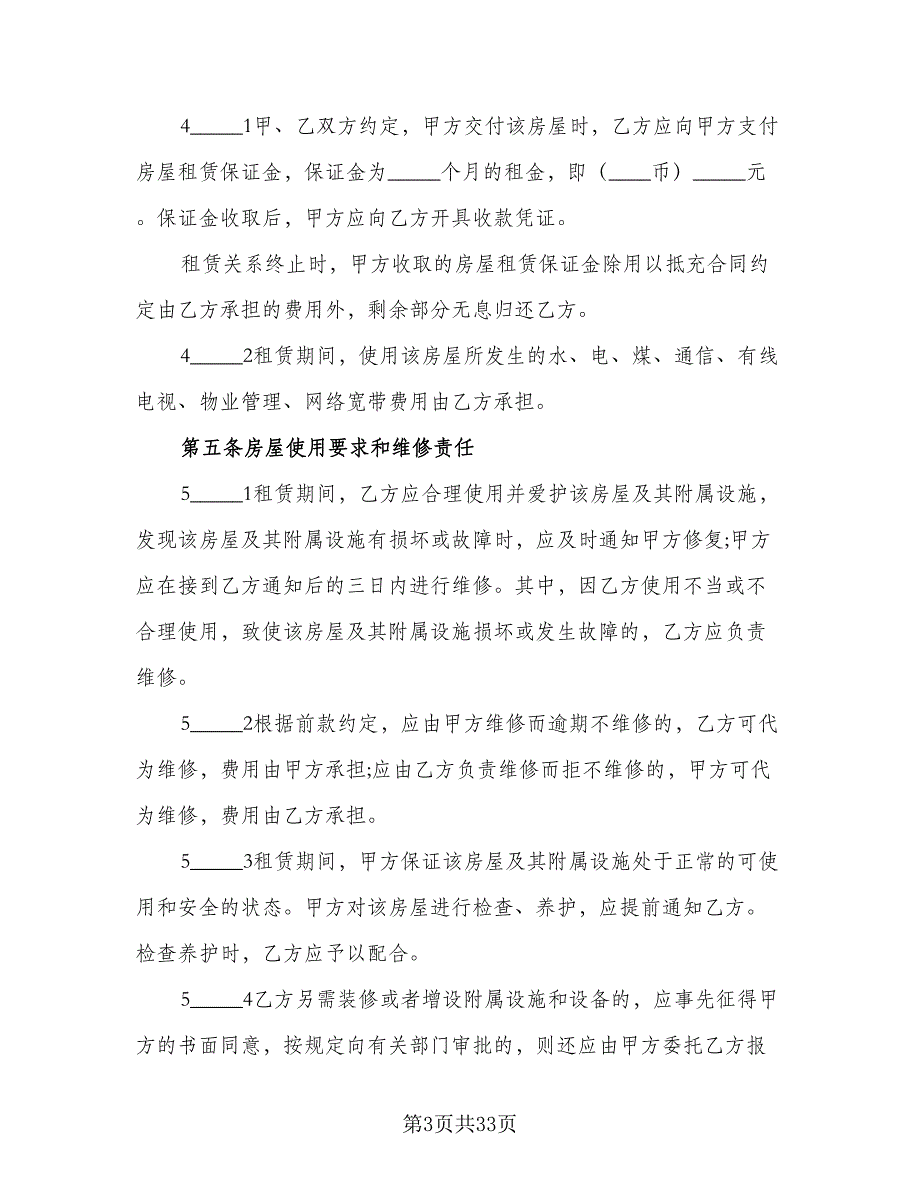 4_____1甲、乙双方约定，甲方交付该房屋时，乙方应向甲方支付
房屋租赁保证金，保证金为_____个月的租金，即（____币）_____元
。保证金收取后，甲方应向乙方开具收款凭证。
租赁关系终止时，甲方收取的房屋租赁保证金除用以抵充合同约
定由乙方承担的费用外，剩余部分无息归还乙方。
4_____2租赁期间，使用该房屋所发生的水、电、煤、通信、有线
电视、物业管理、网络宽带费用由乙方承担。
第五条房屋使用要求和维修责任
5_____1租赁期间，乙方应合理使用并爱护该房屋及其附属设施，
发现该房屋及其附属设施有损坏或故障时，应及时通知甲方修复;甲方
应在接到乙方通知后的三日内进行维修。其中，因乙方使用不当或不
合理使用，致使该房屋及其附属设施损坏或发生故障的，乙方应负责
维修。
5_____2根据前款约定，应由甲方维修而逾期不维修的，乙方可代
为维修，费用由甲方承担;应由乙方负责维修而拒不维修的，甲方可代
为维修，费用由乙方承担。
5_____3租赁期间，甲方保证该房屋及其附属设施处于正常的可使
用和安全的状态。甲方对该房屋进行检查、养护，应提前通知乙方。
检查养护时，乙方应予以配合。
5_____4乙方另需装修或者增设附属设施和设备的，应事先征得甲
方的书面同意，按规定向有关部门审批的，则还应由甲方委托乙方报
第3页共33页